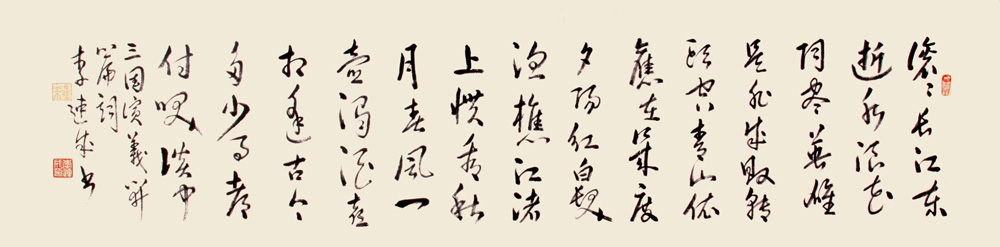 滚々长江东
逝水浪花
淘尽英雄
是非成败转
头空青山依
舊在几度
夕阳红白发
渔樵江渚
上惯看秋
月春风一
壶浊酒喜
相逢古今
多少事都
付笑谈中
三国演義开
篇词
李成书